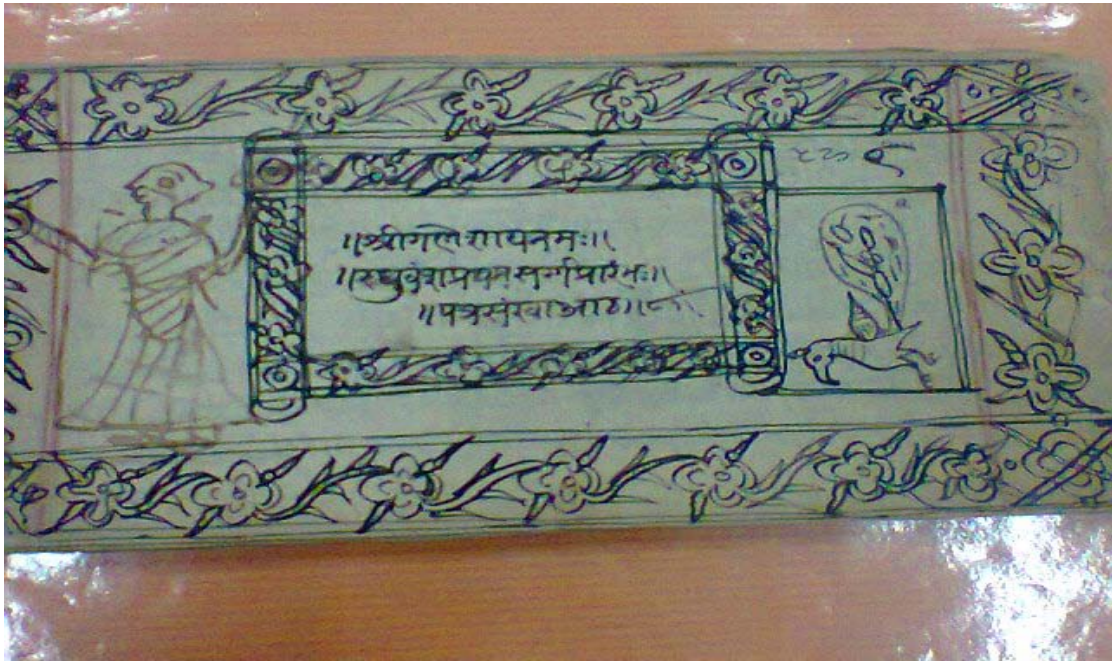 ॥श्रीगणेशायनमः॥
॥रघुवंशप्रथमसर्गप्रारंभः॥
॥पत्रसंख्याआठ॥८॥